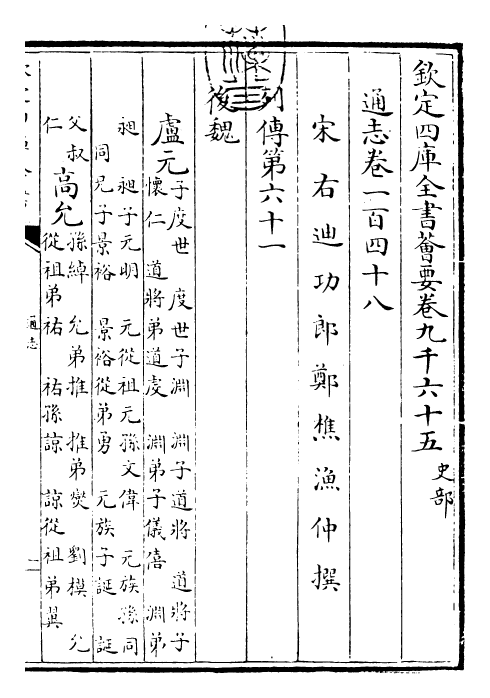 欽定四庫全書薈要卷九千六十五 史部
通志卷一百四十八
宋右迪功郎鄭樵漁仲撰
列傳第六十一
後魏
盧元 子度世 度世子淵 淵子道將 道將子
懷仁 道將弟道虔 淵弟子儀僖 淵弟
昶 昶子元明 元從祖元孫文偉 元族孫同
同兄子景裕 景裕從弟勇 元族子誕 誕
父叔
仁
高允 孫綽 允弟推 推弟燮 劉模 允
從祖弟祐 祐孫諒 諒從祖弟翼
通志
一